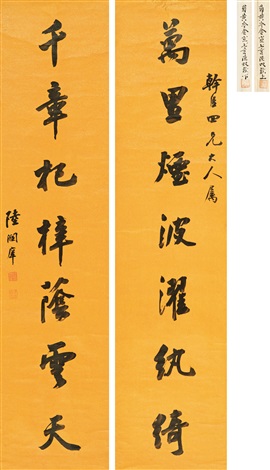 幹臣四兄大人属
萬里煙波濯紈綺
千章杞梓蔭雲天
陸潤庠